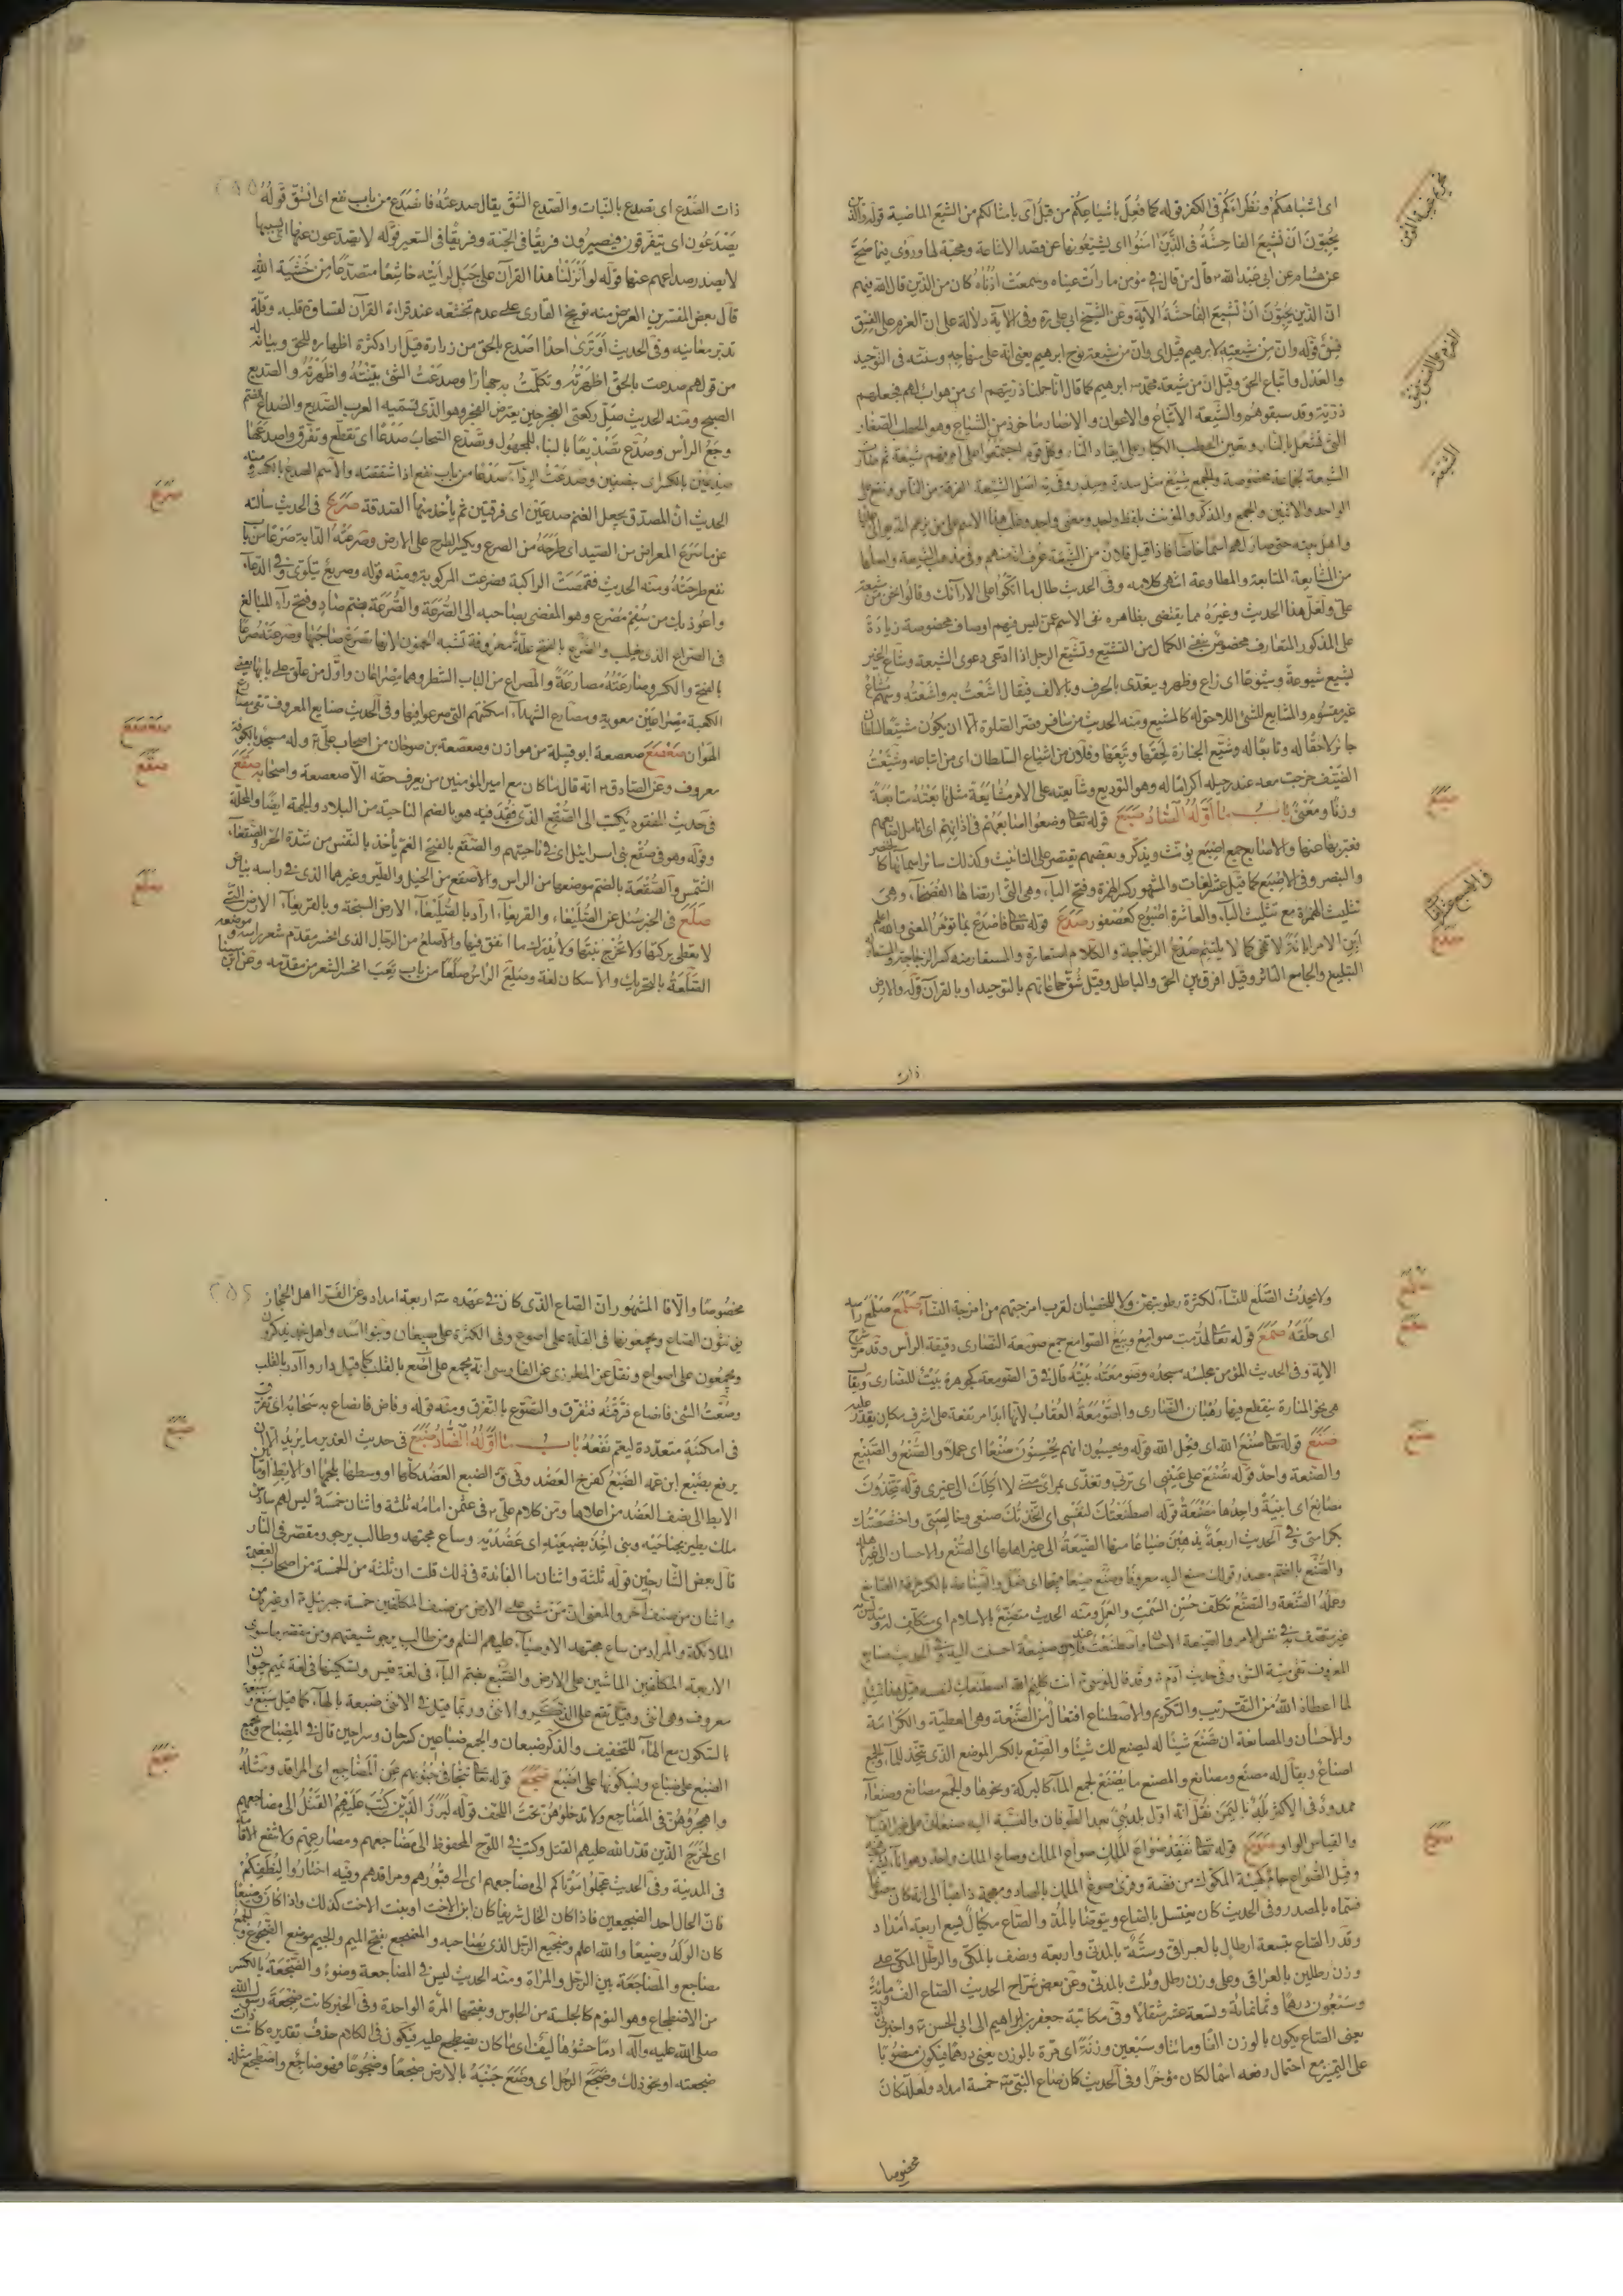 اى اشباهكم ونظراءكم فى الكفر قوله كما فعل باشياعهم من قبل اى بامثالكم من الشيع الماضية قوله والذين
يحبون ان تشيع الفاحشة فى الذين امنوا اى يشيعونها عن قصد الاشاعة ومحبة لها وروى فيما صح
عن هشام عن ابى عبد الله قال من قال فى مؤمن ما رات عيناه وسمعت اذناه كان من الذين قال الله فيهم
ان الذين يحبون ان تشيع الفاحشة الآية وفى الآية دلالة على ان العزم على الفسق
فسق قوله وان من شيعته لابرهيم قيل اى وان من شيعة نوح ابرهيم يعنى انه على منهاجه وسنته فى التوحيد
والعدل واتباع الحق وقيل ان من شيعة محمد ابرهيم كما قال انا حملنا ذريتهم اى من هو اب لهم فجعلهم
ذرية وقد سبقوهم والشيعة الاتباع والاعوان والانصار ماخوذ من الشياع وهو الحطب الصغار
التى تشتعل بالنار وتعين الحطب الكبار على ايقاد النار وكل قوم اجتمعوا على امر فهم شيعة ثم صارت
الشيعة لجماعة مخصوصة والجمع شيع مثل سدرة وسدر وفى اصل الشيعة الفرقة من الناس وتقع على
الواحد والاثنين والجمع والمذكر والمؤنث بلفظ واحد ومعنى واحد وغلب هذا الاسم على من يزعم انه يوالى عليا
واهل بيته حتى صار لهم اسما خاصا فاذا قيل فلان من الشيعة عرف انه منهم وفى مذهب الشيعة واصلها
من المشايعة المتابعة والمطاوعة انتهى كلامه وفى الحديث طال ما اتكوا على الارائك وقالوا نحن من شيعة
على ولعل هذا الحديث وغيره مما يقتضى بظاهره نفى الاسم عمن ليس فيهم اوصاف مخصوصة زيادة
على المذكور المتعارف مخصوص بنفى الكمال من التشيع وتشيع الرجل اذا ادعى دعوى الشيعة وشاع الخبر
يشيع شيوعة وشيوعا اى ذاع وظهر ويتعدى بالحرف وبالالف فيقال اشعت به واشعته وسهم مشاع
غير مقسوم والمشايع للشئ اللاحق له كالمشيع ومنه الحديث من سافر قصر الصلوة الا ان يكون مشيعا لسلطان
جائر لاحقا له وتابعا له وشيع الجنازة لحقها وتبعها وفلان من اشياع السلطان اى من اتباعه وشيعت
الضيف خرجت معه عند رحيله اكراما له وهو التوديع وشايعته على الامر مشايعة مثل تابعته متابعة
وزنا ومعنى باب ما اوله الصاد صبع قوله تعا وضعوا اصابعهم فى اذانهم اى انامل اصابعهم
فعبر بها عنها والاصابع جمع اصبع يؤنث ويذكر وبعضهم يقتصر على التانيث وكذلك سائر اسمائها كالخنصر
والبنصر وفى الاصبع كما قيل عشر لغات والمشهور كسر الهمزة وفتح الباء وهى التى ارتضاها الفصحاء وهى
تثليث الهمزة مع تثليث الباء والعاشرة اصبوع كعصفور صدع قوله تعا فاصدع بما تؤمر المعنى والله اعلم
ابن الامر ابانة لا تمحى كما لا يلتئم صدع الزجاجة والكلام استعارة والمستعار منه كسر الزجاجة والمستعار له
التبليغ والجامع التاثر وقيل افرق بين الحق والباطل وقيل شق جماعاتهم بالتوحيد او بالقرآن قوله والارض
ذات
صبع
صدع
ذات الصدع اى تصدع بالنبات والصدع الشق يقال صدعته فانصدع من باب نفع اى انشق قوله
يصدعون اى يتفرقون فيصيرون فريقا فى الجنة وفريقا فى السعير قوله لا يصدعون عنها اى بسببها
لا يصدر صداعهم عنها قوله لو انزلنا هذا القرآن على جبل لرايته خاشعا متصدعا من خشية الله
قال بعض المفسرين الغرض منه توبيخ القارى على عدم تخشعه عند قراءة القرآن لقساوة قلبه وقلة
تدبر معانيه وفى الحديث او ترى احدا اصدع بالحق من زرارة قيل اراد كثرة اظهاره للحق وبيانه له
من قولهم صدعت بالحق اظهرته وتكلمت به جهارا وصدعت الشئ بينته واظهرته والصديع
الصبح ومنه الحديث صل ركعتى الفجر حين يعترض الفجر وهو الذى تسميه العرب الصديع والصداع بالضم
وجع الرأس وصدع تصديعا بالبناء للمجهول وتصدع السحاب صدعا اى تقطع وتفرق وانصدعها
صدعين بالكسر اى بنصفين وصدعت الرداء صدعا من باب نفع اذا شققته والاسم الصدع بالكسر ومنه
الحديث ان المصدق يجعل الغنم صدعين اى فرقتين ثم يأخذ منهما الصدقة صرع فى الحديث سألته
عن ما صرع المعراض من الصيد اى طرحه من الصرع وبكسر الطرح على الارض وصرعته الدابة صرعا من باب
نفع طرحته ومنه الحديث فقمصت الراكبة فصرعت المركوبة ومنه قوله وصريع يتلوى وفى الدعاء
واعوذ بك من سقم مصرع وهو المفضى بصاحبه الى الصرعة والصرعة بضم صاد وفتح راء المبالغ
فى الصراع الذى يغلب والصرع بالفتح علة معروفة تشبه الجنون لانها تصرع صاحبها وصرعته صرعا
بالفتح والكسر وصارعته مصارعة والمصراع من الباب الشطر وهما مصراعان واول من علق على بابها يعنى
الكعبة مصراعين معوية ومصارع الشهداء امكنتهم التى صرعوا فيها وفى الحديث صنايع المعروف تقى مصارع
الهوان صعصع صعصعة ابو قبيلة من هوازن وصعصعة بن صوحان من اصحاب على وله مسجد بالكوفة
معروف وعن الصادق انه قال ما كان مع امير المؤمنين من يعرف حقه الا صعصعة واصحابه صقع
فى حديث المفقود يكتب الى الصقع الذى فقد فيه هو بالضم الناحية من البلاد والجهة ايضا والمحلة
وقوله وهو فى صقع بنى اسرائيل اى فى ناحيتهم والصقع بالفتح الغم يأخذ بالنفس من شدة الحر والصقعاء
الشمس والصقعة بالضم موضعها من الراس والاصقع من الخيل والطير وغيرهما الذى فى راسه بياض
صلع فى الخبر سئل عن الصليعاء والقريعاء اراد بالصليعاء الارض السبخة وبالقريعاء الارض التى
لا يعطى بركتها ولا تخرج نبتها ولا يدرك ما انفق فيها والاصلع من الرجال الذى انحسر مقدم شعر راسه وموضعه
الصلعة بالتحريك والاسكان لغة وصلع الراس صلعا من باب تعب انحسر الشعر من مقدمه وعن ابن سينا
صرع
صعصع
صقع
صلع
ولا يحدث الصلع للنساء لكثرة رطوبتهن ولا للخصيان لقرب امزجتهم من امزجة النساء صلمع صلمع راسه
اى حلقه صمع قوله تعا لهدمت صوامع وبيع الصوامع جمع صومعة النصارى دقيقة الرأس وقد مر شرح
الاية وفى الحديث المؤمن مجلسه مسجده وصومعته بيته قال فى ق الصومعة كجوهرة بيت للنصارى ويقال
هى نحو المنارة ينقطع فيها رهبان النصارى والصومعة العقاب لانها ابدا مرتفعة على اشرف مكان يقدر عليه
صنع قوله تعا صنع الله اى فعل الله قوله ويحسبون انهم يحسنون صنعا اى عملا والصنع والصنيع
والصنعة واحد قوله تصنع على عينى اى تربى وتغذى بمرأى منى لا اكلك الى غيرى قوله تتخذون
مصانع اى ابنية واحدها مصنعة قوله اصطنعتك لنفسى اى اتخذتك صنعى وخالصتى واختصصتك
بكرامتى وفى الحديث اربعة يذهبن ضياعا منها الصنيعة الى غير اهلها اى الصنع والاحسان الى غير اهله
والصنع بالضم مصدر قولك صنع اليه معروفا وصنع صنيعا قبيحا اى فعل والصناعة بالكسر حرفة الصانع
وعمله الصنعة والتصنع تكلف حسن السمت والعمل ومنه الحديث متصنع بالاسلام اى متكلف له ومتدلس به
غير متصف به فى نفس الامر والصنيعة الاحسان واصطنعت عند فلان صنيعة احسنت اليه وفى الحديث صنايع
المعروف تقى ميتة السوء وفى حديث آدم وقد قال لموسى انت كليم الله اصطنعك لنفسه قيل هذا تمثيل
لما اعطاه الله من التقريب والتكريم والاصطناع افتعال من الصنعة وهى العطية والكرامة
والاحسان والمصانعة ان تصنع شيئا له ليصنع لك شيئا والصنع بالكسر الموضع الذى يتخذ للماء والجمع
اصناع ويقال له مصنع ومصانع والمصنع ما يصنع لجمع الماء كالبركة ونحوها والجمع مصانع وصنعاء
ممدود فى الاكثر بلد باليمن نقل انه اول بلد بنى بعد الطوفان والنسبة اليه صنعانى على غير القياس
والقياس الواو صوع قوله تعا نفقد صواع الملك صواع الملك وصاع الملك واحد وهو اناء يشرب فيه
وقيل الصواع جام كهيئة المكوك من فضة وقرئ صوغ الملك بالصاد ومعجمة ذاهبا الى انه كان مصوغا
فسماه بالمصدر وفى الحديث كان يغتسل بالصاع ويتوضا بالمد والصاع مكيال يسع اربعة امداد
وقدر الصاع بتسعة ارطال بالعراقى وستة بالمدنى واربعة ونصف بالمكى والرطل المكى على
وزن رطلين بالعراقى وعلى وزن رطل وثلث بالمدنى وعن بعض شراح الحديث الصاع الف ومائة
وسبعون درهما وثمانمائة وتسعة عشر مثقالا وفى مكاتبة جعفر بن ابراهيم الى ابى الحسن واخبرنى انه
يعنى الصاع يكون بالوزن الفا ومائتا وسبعين وزنة اى مرة بالوزن يعنى درهما فيكون منصوبا
على التمييز مع احتمال رفعه اسما لكان مؤخرا وفى الحديث كان صاع النبى خمسة امداد ولعله كان
مخصوصا
صلمع
صمع
صنع
صوع
مخصوصا والا فالمشهور ان الصاع الذى كان فى عهده اربعة امداد وعن الفراء اهل الحجاز
يؤنثون الصاع ويجمعونها فى القلة على اصوع وفى الكثرة على صيعان وبنو اسد واهل نجد يذكرون
ويجمعون على اصواع ونقل عن المطرزى عن الفارسى انه يجمع على آصع بالقلب كما قيل دار وآدر بالقلب
وصعت الشئ فانصاع فرقته فتفرق والتصوع التفرق ومنه قوله وفاض فانصاع به سحابه اى تفرق
فى امكنة متعددة ليعم نفعه باب ما اوله الضاد ضبع فى حديث الغدير ما يريد الا ان
يرفع بضبع ابن عمه الضبع كفرخ العضد وفى ق الضبع العضد كلها او وسطها بلحمها او الابط او ما بين
الابط الى نصف العضد من اعلاها ومن كلام على فى عثمان امامه ثلثة واثنان خمسة ليس لهم سادس
ملك يطير بجناحيه ونبى اخذ بضبعيه اى عضديه وساع مجتهد وطالب يرجو ومقصر فى النار
قال بعض الشارحين قوله ثلثة واثنان ما الفائدة فى ذلك قلت ان ثلثة من الخمسة من اصحاب العصمة
واثنان من صنف آخر والمعنى ان من مشى على الارض من صنف المكلفين خمسة جبرئيل او غيره من
الملائكة والمراد من ساع مجتهد الاوصياء عليهم السلم ومن طالب يرجو شيعتهم ومن مقصر ما سوى
الاربعة المكلفين الماشين على الارض والضبع بضم الباء فى لغة قيس وبسكونها فى لغة تميم حيوان
معروف وهى انثى وقيل تقع على الذكر والانثى وربما قيل فى الانثى ضبعة بالهاء كما قيل سبع وسبعة
بالسكون مع الهاء للتخفيف والذكر ضبعان والجمع ضباعين كسرحان وسراحين قال فى المصباح ويجمع
الضبع على ضباع وبسكونها على اضبع ضجع قوله تعا تتجافى جنوبهم عن المضاجع اى المراقد ومثله
واهجروهن فى المضاجع ولا تدخلوهن تحت اللحف قوله لبرز الذين كتب عليهم القتل الى مضاجعهم
اى لخرج الذين قدر الله عليهم القتل وكتب فى اللوح المحفوظ الى مضاجعهم ومصارعهم ولا تنفع الاقامة
فى المدينة وفى الحديث عجلوا موتاكم الى مضاجعهم اى الى قبورهم ومراقدهم وفيه اختاروا لنطفكم
فان الخال احد الضجيعين فاذا كان الخال شريفا كان ابن الاخت او بنت الاخت كذلك واذا كان وضيعا
كان الولد وضيعا والله اعلم وضجيع الرجل الذى يصاحبه والمضجع بفتح الميم والجيم موضع الضجوع والجمع
مضاجع والمضاجعة بين الرجل والمراة ومنه الحديث ليس فى المضاجعة وضوء والضجعة بالكسر
من الاضطجاع وهو النوم كالجلسة من الجلوس وبفتحها المرة الواحدة وفى الخبر كانت ضجعة رسول الله
صلى الله عليه وآله ادما حشوها ليف اى ما كان يضطجع عليه فيكون فى الكلام حذف تقديره كانت ذات
ضجعته او نحو ذلك وضجع الرجل اى وضع جنبه بالارض ضجعا وضجوعا فهو ضاجع واضطجع مثله
ضبع
ضجع